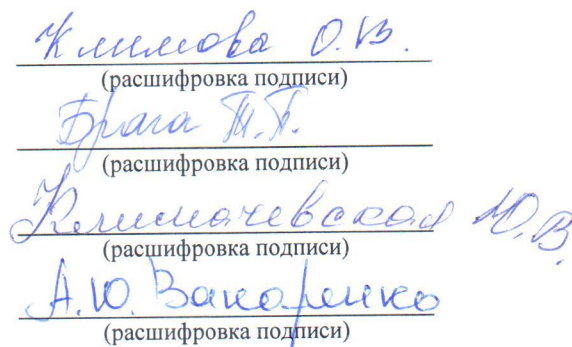 Климова О.В.
(расшифровка подписи)
Брага Т.П.
(расшифровка подписи)
Климачевская Ю.В.
(расшифровка подписи)
А.Ю. Вакаренко
(расшифровка подписи)